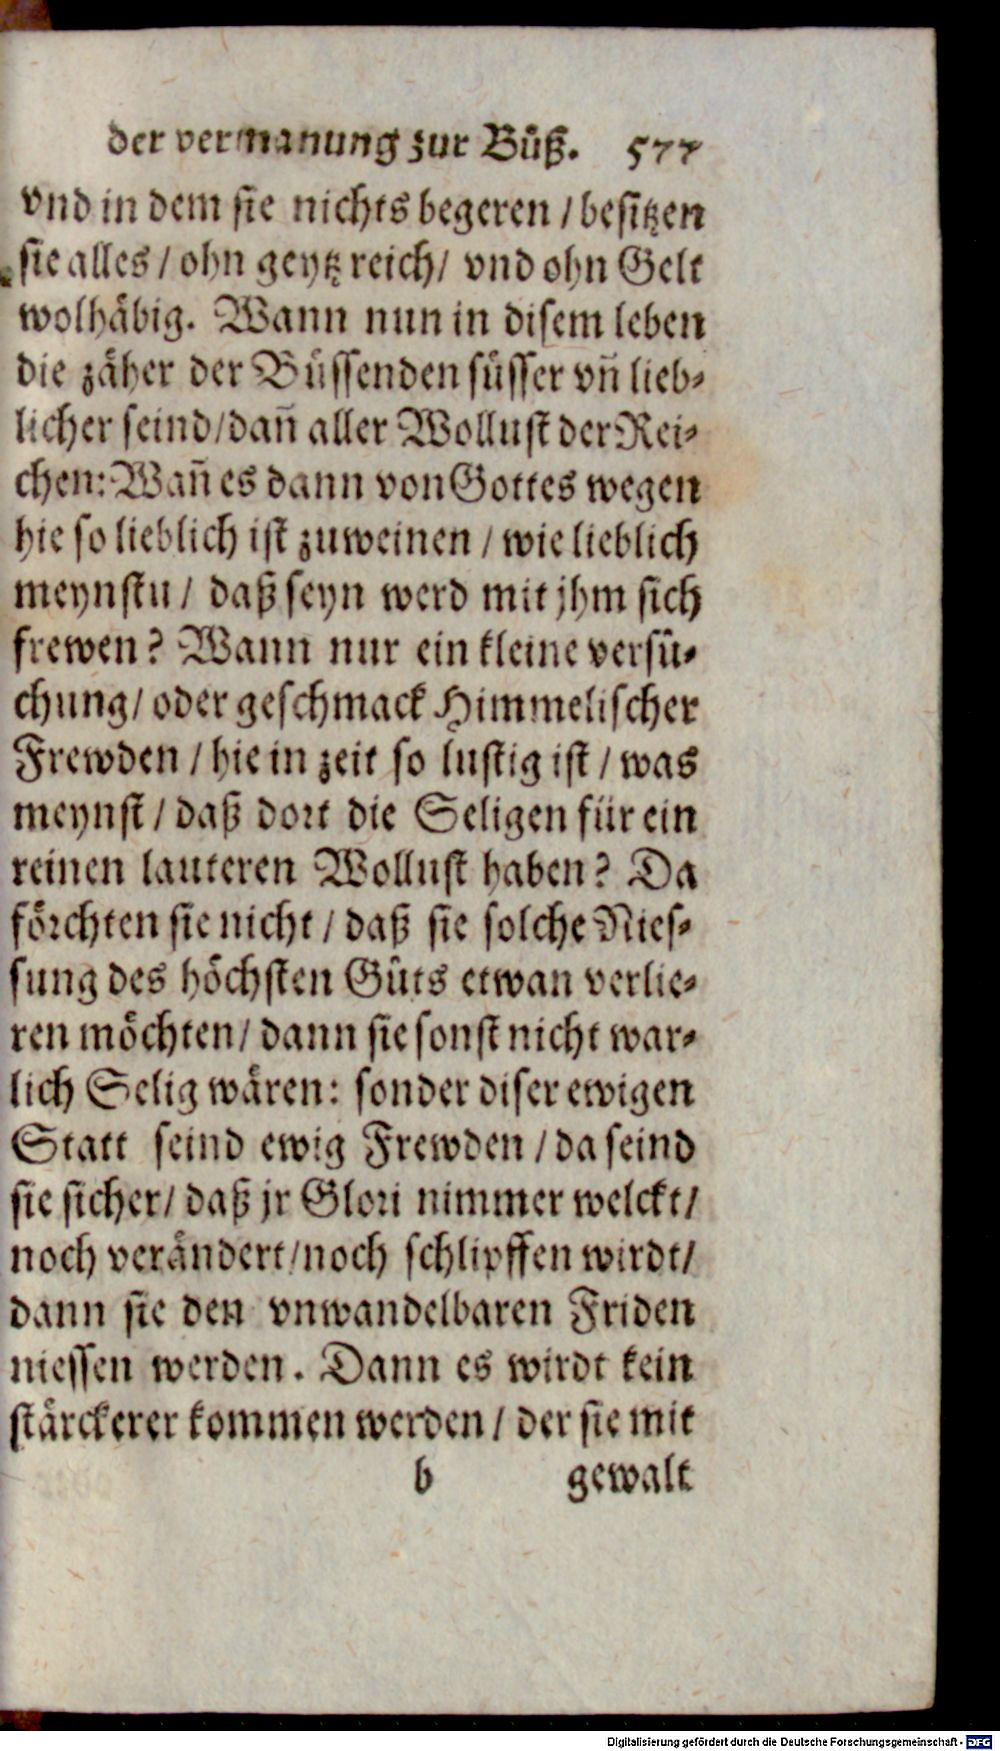 der vermanung zur Bůß. 577
vnd in dem sie nichts begeren / besitzen
sie alles / ohn geytz reich / vnd ohn Gelt
wolhäbig. Wann nun in disem leben
die zäher der Büssenden süsser vñ lieb⸗
licher seind / dañ aller Wollust der Rei⸗
chen: Wañ es dann von Gottes wegen
hie so lieblich ist zuweinen / wie lieblich
meynstu / daß seyn werd mit jhm sich
frewen? Wann nur ein kleine versů⸗
chung / oder geschmack Himmelischer
Frewden / hie in zeit so lustig ist / was
meynst / daß dort die Seligen für ein
reinen lauteren Wollust haben? Da
förchten sie nicht / daß sie solche Nies⸗
sung des höchsten Gůts etwan verlie⸗
ren möchten / dann sie sonst nicht war⸗
lich Selig wären: sonder diser ewigen
Statt seind ewig Frewden / da seind
sie sicher / daß jr Glori nimmer welckt /
noch verändert / noch schlipffen wirdt /
dann sie den vnwandelbaren Friden
niessen werden. Dann es wirdt kein
stärckerer kommen werden / der sie mit
b gewalt
Digitalisierung gefördert durch die Deutsche Forschungsgemeinschaft - DFG